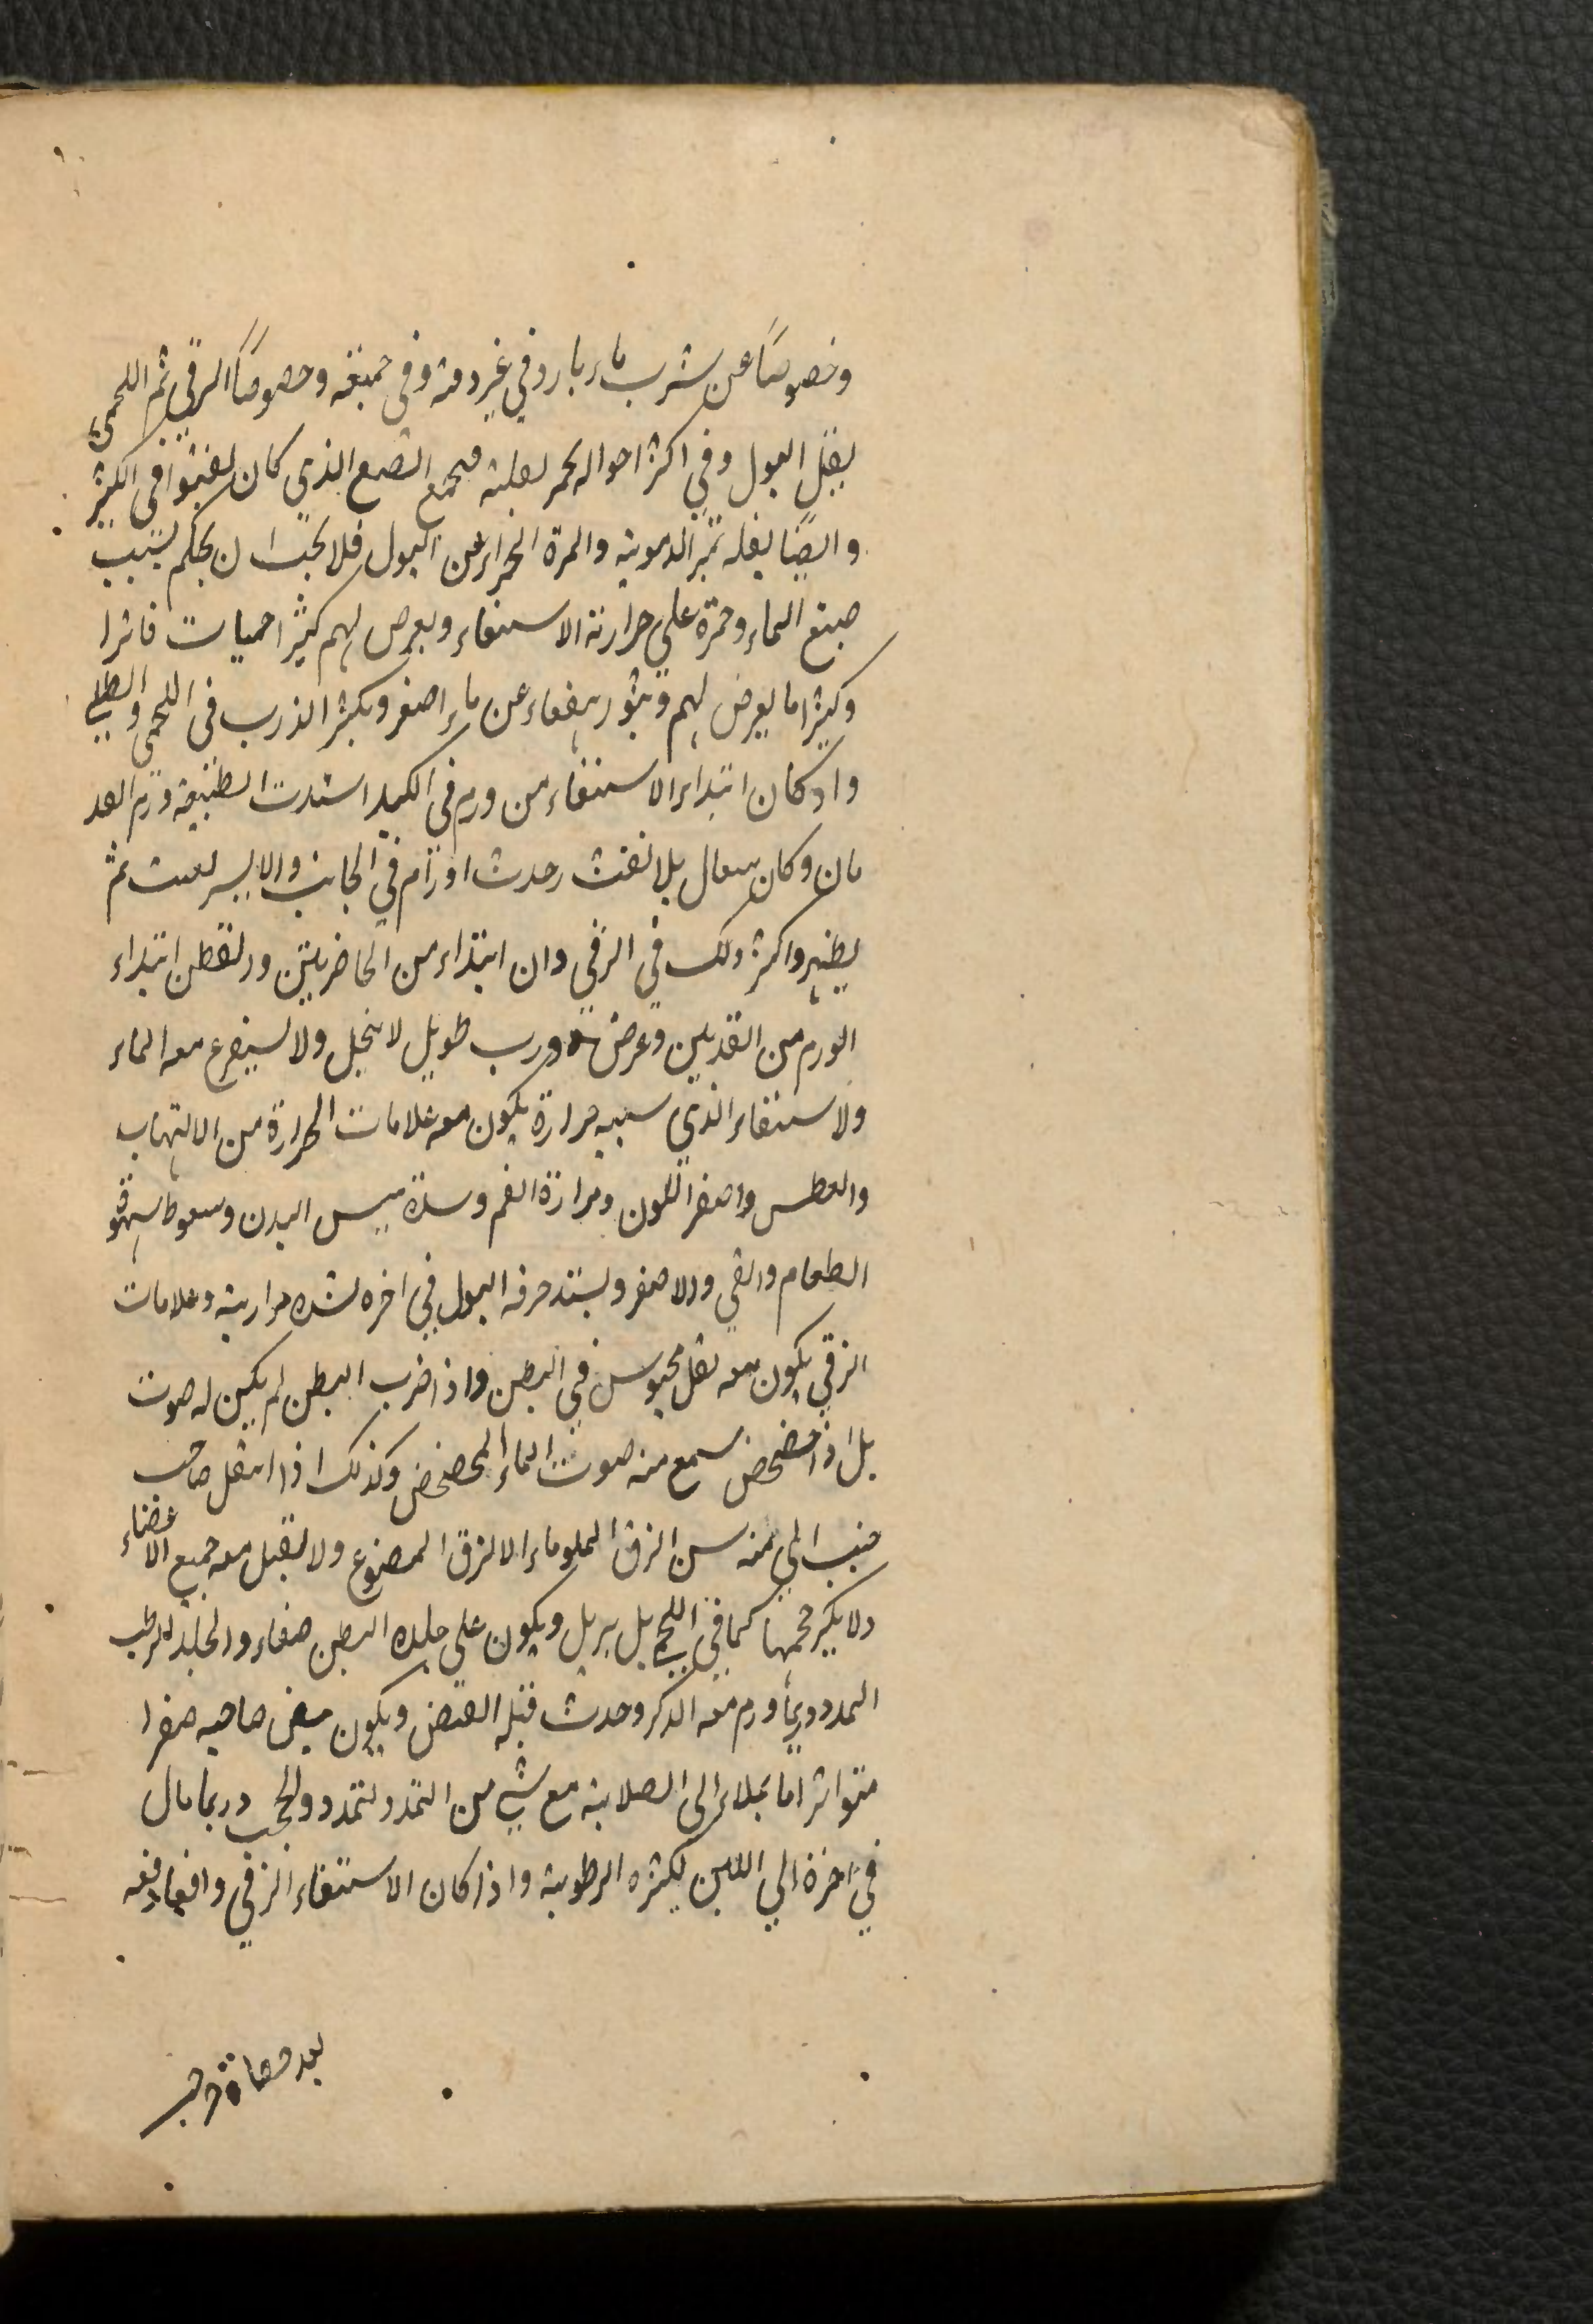 وخصوصاً عن شرب ماء بارد في غير وقته وفى جميعه وخصوصاً الزقي ثم اللحمى
يقل البول وفي اكثر احواله يحمر لقلته فيجمع الصبغ الذي كان يفشوا فى الكثير
وايضاً لقله تميز الدموية والمرة الحمراء عن البول فلا يجب ان يحكم بسبب
صبغ الماء وحمرة علي حرارة الاستقاء ويعرض لهم كثيرا حميات فاترا
وكثيرا ما يعرض لهم وبثور ينفقاء عن ماء اصفر ويكثر الذرب فى اللحمى والطبلي
واذ كان ابتداء الاستقاء من ورم في الكبد اشتدت الطبيعة ورم القد
مان وكان سعال بلا نفث وحدث اورام في الجانب والايسر لغيب ثم
يظهر واكثر ذلك في الزقي وان ابتداء من الخاضرتين ورلقطن ابتداء
الورم من القدمين وعرض ذرب طويل لا ينحل ولا يستفرغ معه الماء
ولاستقاء الذي سببه حرارة يكون معه علامات الحرارة من الالتهاب
والعطش واصفر اللون ومرارة الفم وشدة يبس البدن وسقوط شهوة
الطعام والقي والاصفر ويشتد حرقه البول في اخره لشده مراريته وعلامات
الزقي يكون معه ثقل محبوس في البطن واذا ضرب البطن لم يكن له صوت
بل اذا خضخض سمع منه صوت الماء المخضخض وكذلك اذا انتقل صاحب
جنب الي جنبه سن الزق المملو ماء الا لزق المصنوع ولا تقبل معه جميع الاعضاء
ولا يكبر حجمها كما في اللحمي بل يربل ويكون علي جلده البطن صفاء والجلد الرطب
الممدود وربما ورم معه الذكر وحدث قبله القبض ويكون نبض صاحبه صغرا
متواترا مايلا الى الصلابة مع شي من التمدد لتمدد والحجب وربما مال
في اخرة الي اللين لكثره الرطوبة واذا كان الاستقاء الزقي واقعا دفعه
بعد حصاة خرجت